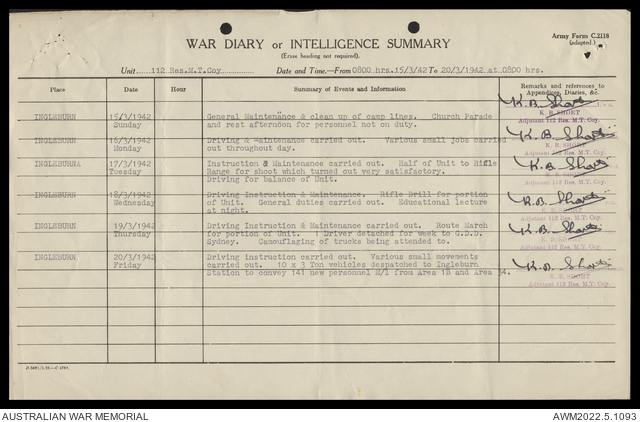 Army Form C.2118
(adapted.)
WAR DIARY or INTELLIGENCE SUMMARY
(Erase heading not required).
Unit 112 Res.M.T.Coy Date and Time—From 0800 hrs.15/3/42 To 20/3/1942 at 0800 hrs.
Place Hour Summary of Events and Information Remarks and references to
Appendices, Diaries, &c.
K.B. Short
INGLEBURN 15/3/1942 General Maintenance & clean up of camp lines. Church Parade K. B. SHORT
Sunday and rest afternoon for personnel not on duty. Adjutant 112 Res. M.T. Coy.
INGLEBURN 16/3/1942 Driving & maintenance carried out. Various small jobs carried K.B. Short
Monday out throughout day. Adjutant 112 Res. M.T. Coy.
INGLEBURNA 17/3/1942 Instruction & Maintenance carried out. Half of Unit to Rifle K.B. Short
Tuesday Range for shoot which turned out very satisfactory.
Driving for balance of Unit. Adjutant 112 Res. M.T. Coy.
INGLEBURN 18/3/1942 Driving Instruction & Maintenance. Rifle Drill for portion K.B. Short
Wednesday of Unit. General duties carried out. Educational lecture
at night. Adjutant 112 Res. M.T. Coy.
INGLEBURN 19/3/1942 Driving Instruction & Maintenance carried out. Route March K.B. Short
Thursday for portion of Unit. 1 Driver detached for week to G.D.D.
Sydney. Camouflaging of trucks being attended to. Adjutant 112 Res. M.T. Coy.
INGLEBURN 20/3/1942 Driving instruction carried out. Various small movements K.B. Short
Friday carried out. 10 x 3 Ton vehicles despatched to Ingleburn
Station to convey 141 new personnel M/I from Area 1B and Area 34. K. B. SHORT
Adjutant 112 Res. M.T. Coy.
AUSTRALIAN WAR MEMORIAL AWM2022.5.1093